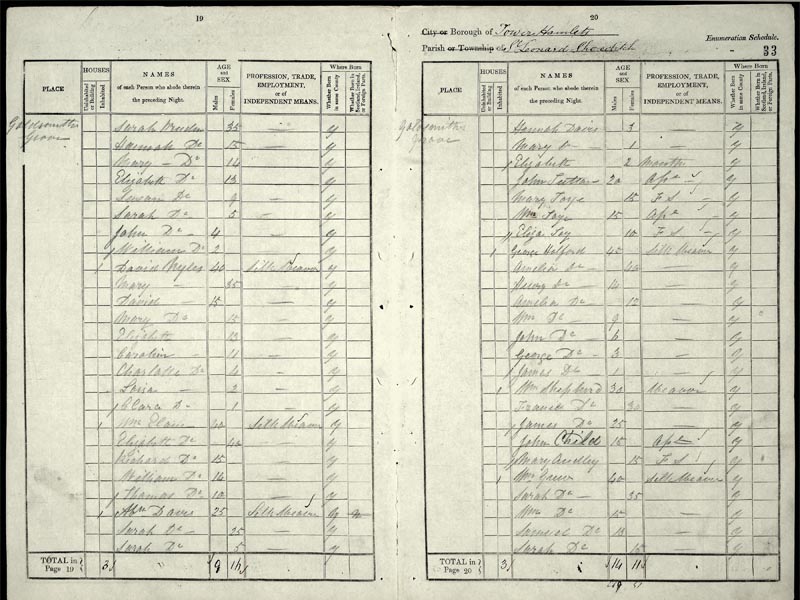 19
PLACE
HOUSES
Uninhabited or Building
Inhabited
NAMES
of each Person who abode therein
the preceding Night.
AGE
and
SEX
Males
Females
PROFESSION, TRADE,
EMPLOYMENT,
or of
INDEPENDENT MEANS.
Where Born
Whether Born in same County
Whether Born in Scotland, Ireland, or Foreign Parts.
Goldsmiths
Grove
Sarah 35 — y
Hannah Do 15 — y
Mary — Do 14 — y
Elizabeth Do 13 — y
Susan Do 9 — y
Sarah Do 5 — y
John Do 4 — y
William Do 2 — y
1 David 40 Silk Weaver y
Mary — 35 — y
David — 15 — y
Mary Do 15 — y
Elizabeth 13 — y
Caroline — 11 — y
Charlotte Do 4 — y
— 2 — y
Clara D— 1 — y
1 Wm 40 Silk Weaver y
Elizabeth Do 40 — y
Richard Do 15 — y
William Do 14 — y
Thomas Do 10 — y
1 Abm Davis 25 Silk Weaver N
Sarah Do — 25 — y
Sarah Do 5 — y
TOTAL in
Page 19
3
9 16
20
City or Borough of Tower Hamlets
Parish or Township of St Leonard Shoreditch
Enumeration Schedule.
33
PLACE
HOUSES
Uninhabited or Building
Inhabited
NAMES
of each Person who abode therein
the preceding Night.
AGE
and
SEX
Males
Females
PROFESSION, TRADE,
EMPLOYMENT,
or of
INDEPENDENT MEANS.
Where Born
Whether Born in same County
Whether Born in Scotland, Ireland, or Foreign Parts.
Goldsmiths
Grove
Hannah Davis 3 — y
Mary Do — 1 — y
Elizabeth 2 Months y
John 20 Ap y
Mary 15 F S y
Wm 15 Ap y
Eliza 10 F S y
1 George 45 Silk Weaver y
Amelia Do — 40 — y
Henry Do 14 — y
Amelia Do — 12 — y
Wm Do 9 — y
John Do 6 — y
George Do — 3 — y
James Do 1 — y
1 Wm Shepherd 30 Weaver y
Frances Do 30 — y
James Do 25 — y
John Child 15 Ap y
Mary Audley 15 F S y
1 Wm 40 Silk Weaver y
Sarah Do — 35 — y
Wm Do 15 — y
Samuel Do — y
Sarah Do 15 — y
TOTAL in
Page 20
3
14 11